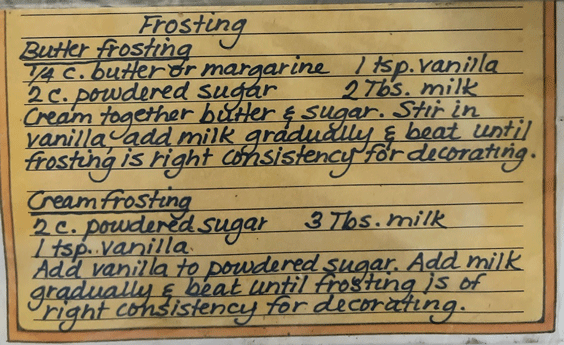 Frosting
Butter frosting
1/4 c. butter or margarine 1 tsp. vanilla
2 c. powdered sugar 2 Tbs. milk
Cream together butter & sugar. Stir in
vanilla, add milk gradually & beat until
frosting is right consistency for decorating.
Cream frosting
2 c. powdered sugar 3 Tbs. milk
1 tsp. vanilla
Add vanilla to powdered sugar. Add milk
gradually & beat until frosting is of
right consistency for decorating.